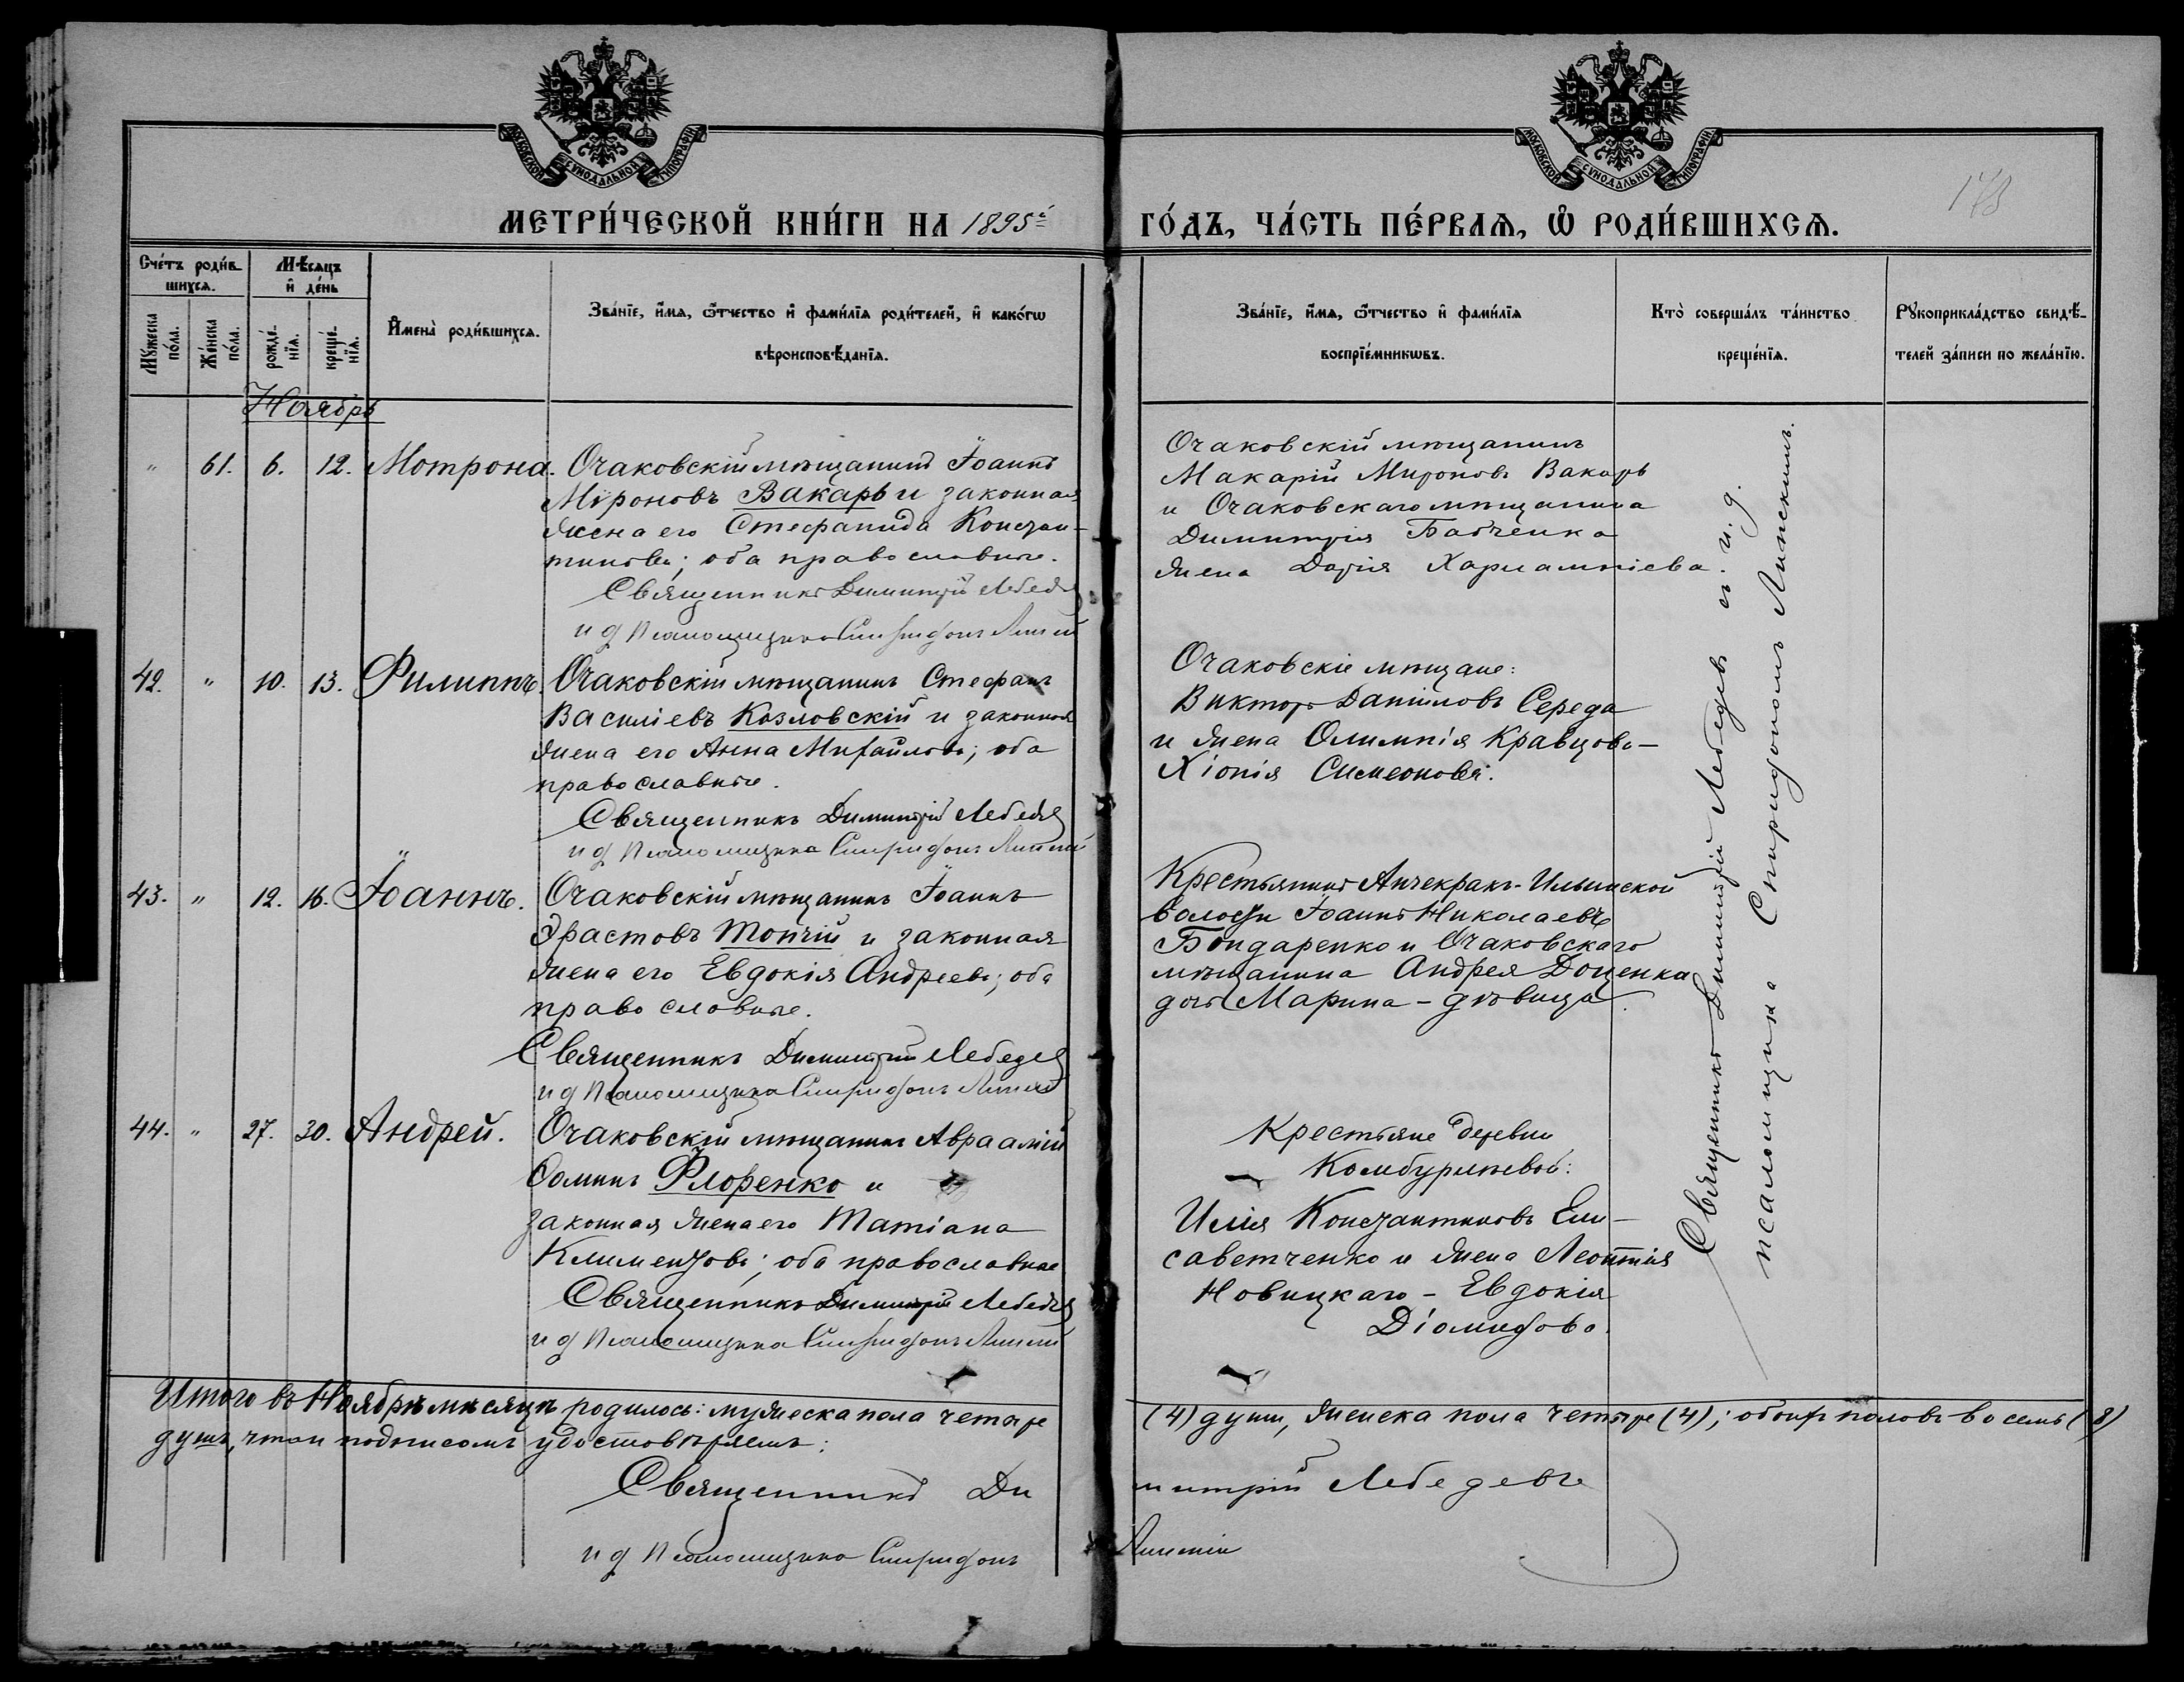 МОСКОВСКОЙ СѴНОДАЛЬНОЙ ТИПОГРАФІИ
МОСКОВСКОЙ СѴНОДАЛЬНОЙ ТИПОГРАФІИ
МЕТРИ́ЧЕСКОЙ КНИ́ГИ НА 1895й
ГО́ДЪ, ЧА́СТЬ ПЕ́РВАѦ, Ѡ҆ РОДИ́ВШИХСѦ.
Сче́тъ роди́в-
шихсѧ.
Мѣ́сѧцъ
и҆ де́нь
Мꙋ́жеска
по́ла.
Же́нска
по́ла.
рожде́-
нїѧ.
креще́-
нїѧ.
И҆мена̀ роди́вшихсѧ.
Зва́нїе, и҆́мѧ, ѻ҆́тчество и҆ фами́лїѧ роди́телей, и҆ како́гѡ
вѣроисповѣ́данїѧ.
Зва́нїе, и҆́мѧ, ѻ҆́тчество и҆ фами́лїѧ
воспрїе́мникѡвъ.
Кто̀ соверша́лъ та́инство
креще́нїѧ.
Рꙋкоприкла́дство свидѣ́-
телей за́писи по жела́нїю.
Ноябрь
" 61. 6. 12. Мотрона. Очаковскій мѣщанинъ Іоаннъ
Міроновъ Вакарь и законная
жена его Стефанида Констан-
тинова; оба православные.
Священникъ Димитрій Лебедевъ
и д псаломщика Спиридонъ Липскій
Очаковскій мѣщанинъ
Макарій Мироновъ Вакарь
и Очаковскаго мѣщанина
Димитрія Бабченка
жена Дарія Харлампіева.
42. " 10. 13. Филиппъ. Очаковскій мѣщанинъ Стефанъ
Василіевъ Козловскій и законная
жена его Анна Михайлова; оба
православные.
Священникъ Димитрій Лебедевъ
и д псаломщика Спиридонъ Липскій
Очаковскіе мѣщане:
Викторъ Даніиловъ Середа
и жена Олимпія Кравцова-
Хіонія Симеонова.
43. " 12. 16. Іоаннъ. Очаковскій мѣщанинъ Іоаннъ
Эрастовъ Топчій и законная
жена его Евдокія Андреева; оба
православные.
Священникъ Димитрій Лебедевъ
и д псаломщика Спиридонъ Липскій
Крестьянинъ Анчекрак-Ильинской
волости Іоаннъ Николаевъ
Бондаренко и Очаковскаго
мѣщанина Андрея Доценка
дочь Марина - дѣвица.
44. " 27. 30. Андрей. Очаковскій мѣщанинъ Авраамій
Ѳоминъ Флоренко и
законная жена его Татіана
Климентова; оба православные
Священникъ Димитрій Лебедевъ
и д псаломщика Спиридонъ Липскій
Крестьяне деревни
Комбурлѣевой:
Илія Константиновъ Ели-
саветченко и жена Леонтія
Новицкаго - Евдокія
Діомидова.
Священникъ Димитрій Лебедевъ съ и. д.
псаломщика Спиридономъ Липскимъ.
Итого въ Ноябрѣ мѣсяцѣ родилось: мужеска пола четыре
(4) души, женска пола четыре (4); обоихъ половъ восемь (8)
душъ, что и подписомъ удостовѣряемъ:
Священникъ Димитрій Лебедевъ
и д псаломщика Спиридонъ Липскій